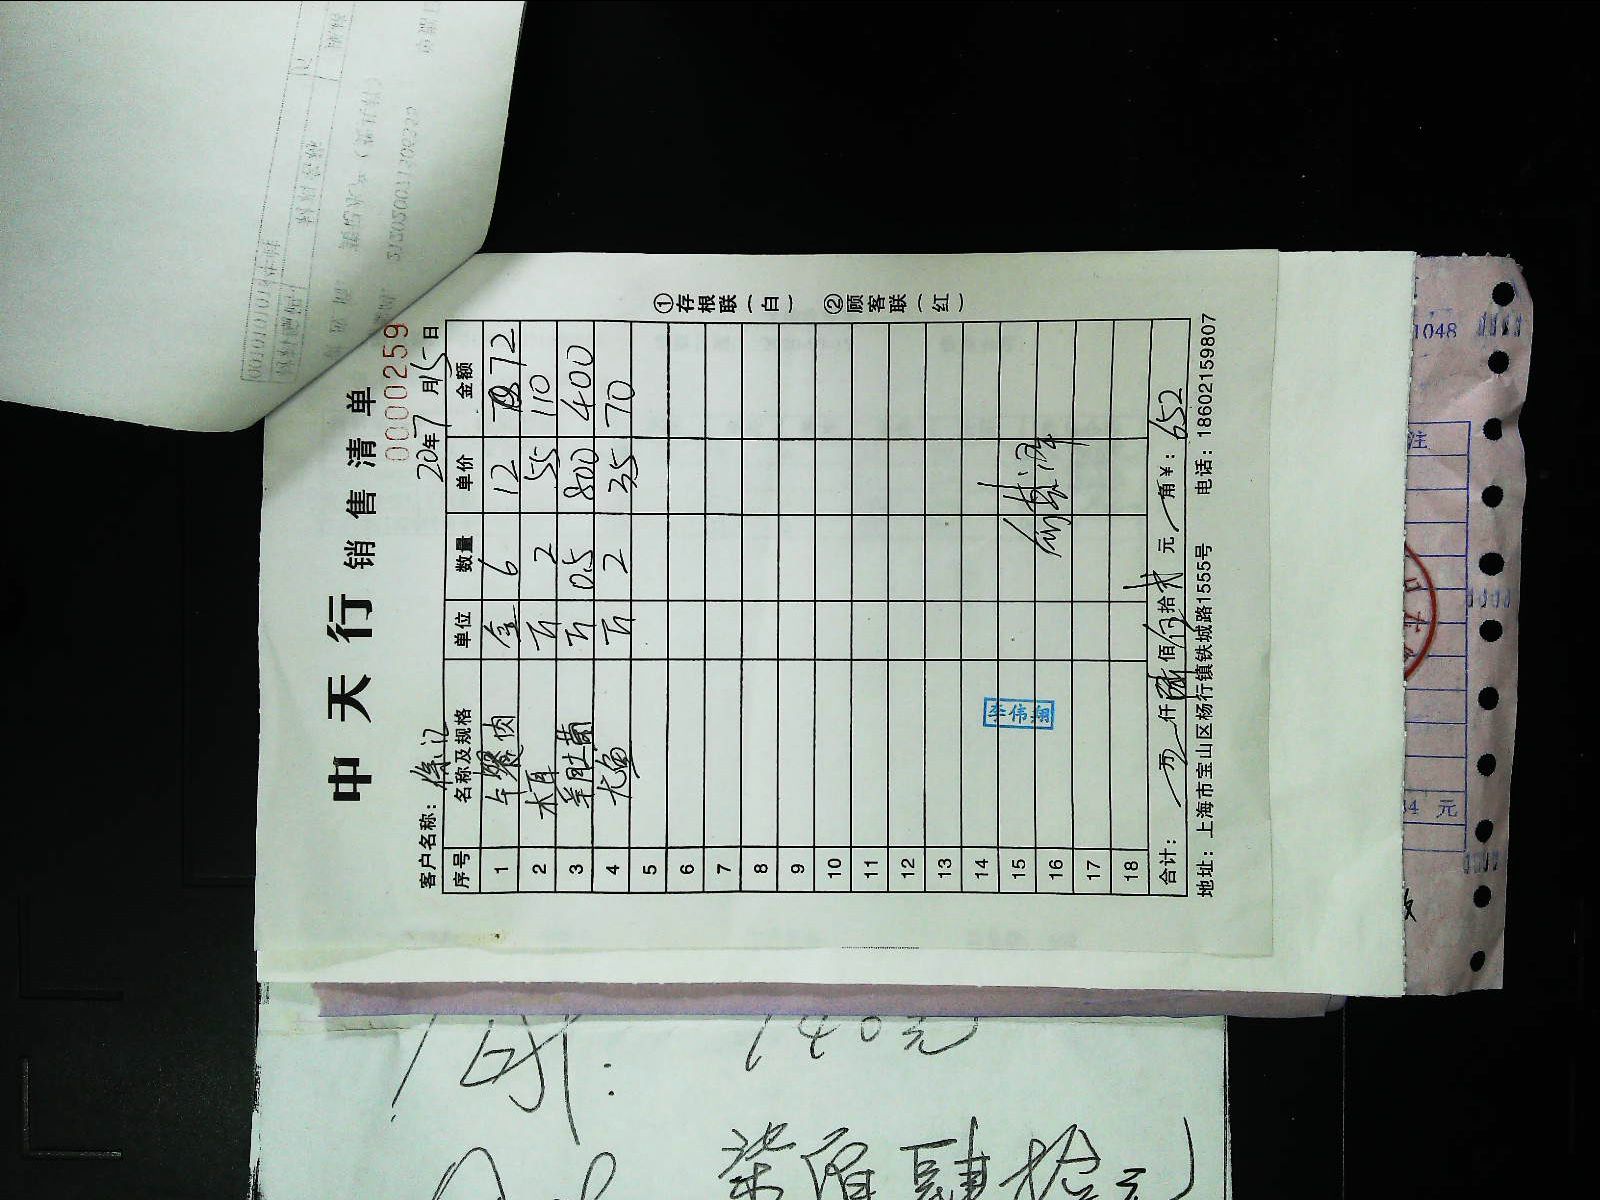 中天行销售清单
0000259
客户名称：徐记 20年7月15日
序号 名称及规格 单位 数量 单价 金额
1 午餐肉 盒 6 12 72
2 木耳 斤 2 55 110
3 羊肚菌 斤 0.5 800 400
4 尤鱼 斤 2 35 70
5
6
7
8
9
10
11
12
13
14
15
16
17
18
李伟翔
合计： 万 仟 陆 佰 伍 拾 贰 元 角 ¥：652
地址：上海市宝山区杨行镇铁城路1555号 电话：18602159807
①存根联（白） ②顾客联（红）
1048
注
34 元
140元
柒佰肆拾元